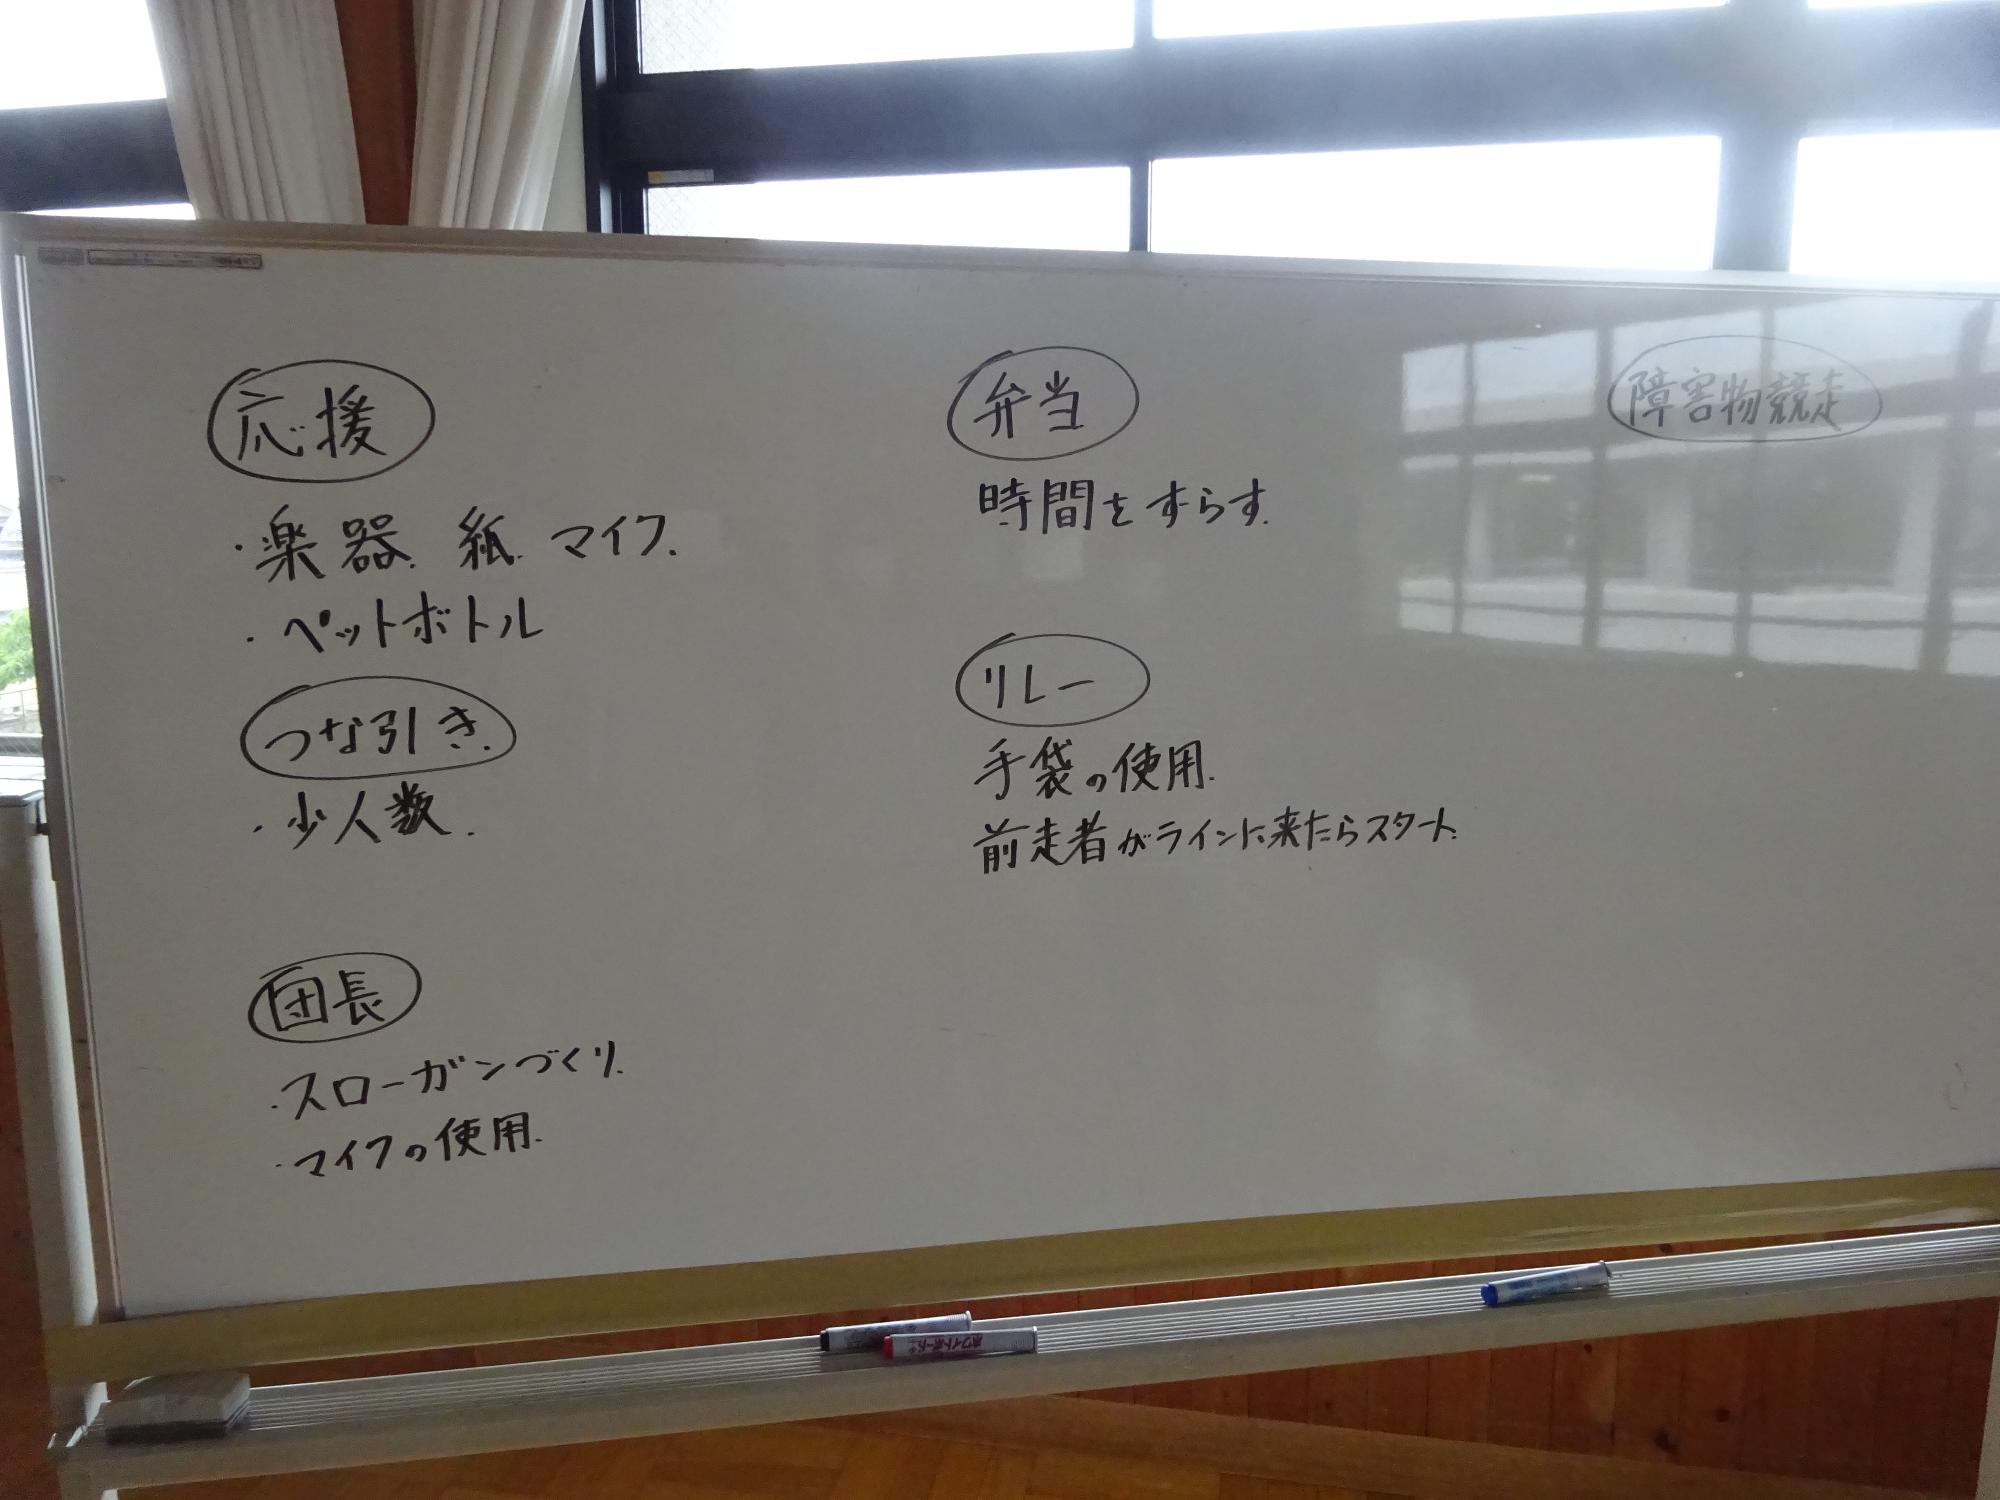 応援
・楽器 紙 マイク.
・ペットボトル
つな引き
・少人数.
団長
・スローガンづくり.
・マイクの使用.
弁当
時間をずらす.
リレー
手袋の使用.
前走者がラインに来たらスタート.
障害物競走
ホワイトボード